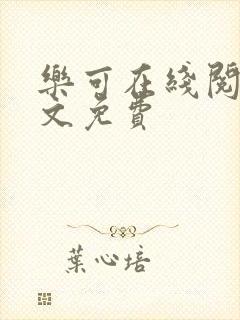 樂可在綫閱
文免費
葉心培